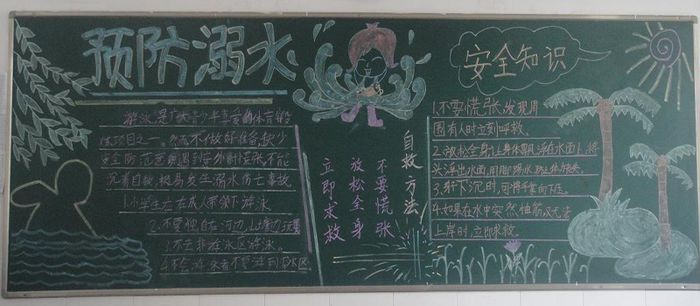 预防溺水
游泳是广大青少年喜爱的体育锻
炼项目之一。然而不做好准备,缺少
安全防范意识,遇到意外时慌张,不能
沉着自救,极易发生溺水伤亡事故。
1.小学生应在成人带领下游泳
2.不要独自在河边、山塘边玩耍
3.不去非游泳区游泳。
4.不会游泳者不要游到深水区
自救方法
不要慌张
放松全身
立即求救
安全知识
1.不要慌张,发现周
围有人时立刻呼救。
2.放松全身,让身体飘浮在水面上,将
头浮出水面,用脚踢水
3.身体下沉时,可将手掌向下压。
4.如果在水中突然抽筋,又无法
上岸时,立即求救。